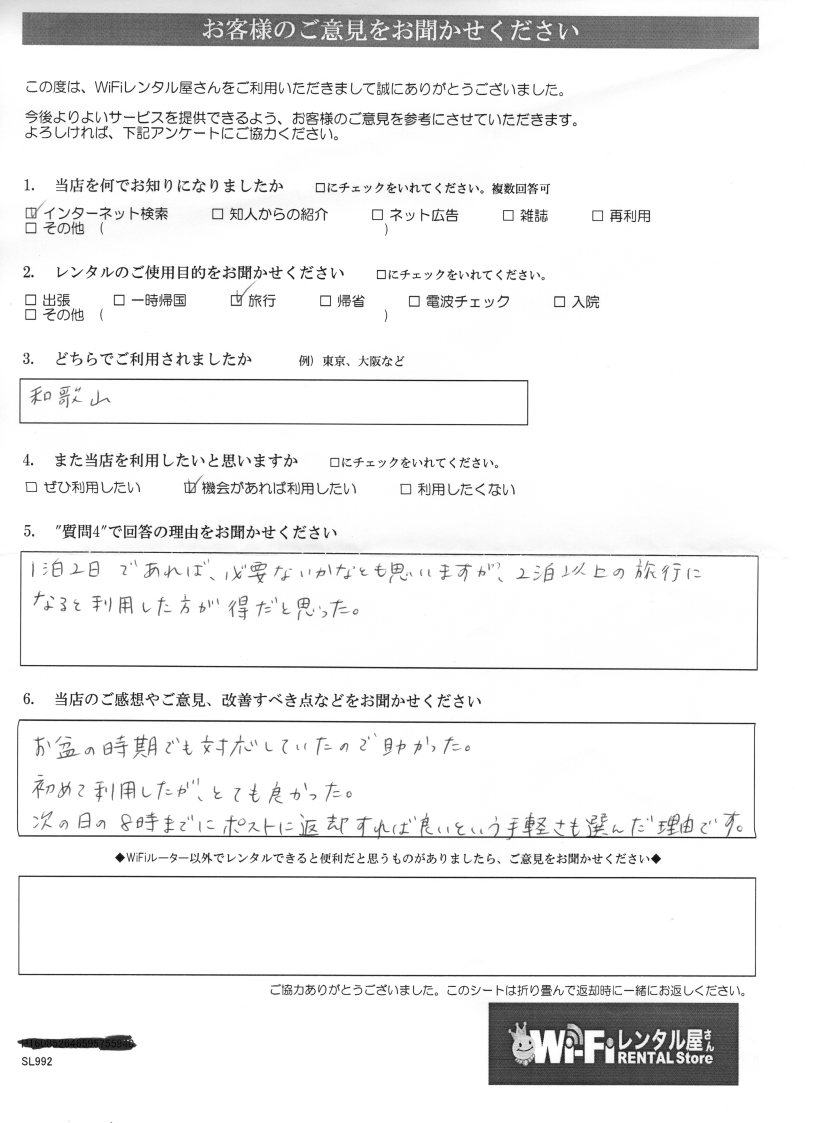 お客様のご意見をお聞かせください
この度は、WiFiレンタル屋さんをご利用いただきまして誠にありがとうございました。
今後よりよいサービスを提供できるよう、お客様のご意見を参考にさせていただきます。
よろしければ、下記アンケートにご協力ください。
1. 当店を何でお知りになりましたか □にチェックをいれてください。複数回答可
☑ インターネット検索 □ 知人からの紹介 □ ネット広告 □ 雑誌 □ 再利用
□ その他 ( )
2. レンタルのご使用目的をお聞かせください □にチェックをいれてください。
□ 出張 □ 一時帰国 ☑ 旅行 □ 帰省 □ 電波チェック □ 入院
□ その他 ( )
3. どちらでご利用されましたか 例）東京、大阪など
和歌山
4. また当店を利用したいと思いますか □にチェックをいれてください。
□ ぜひ利用したい ☑ 機会があれば利用したい □ 利用したくない
5. "質問4"で回答の理由をお聞かせください
1泊2日であれば、必要ないかなとも思いますが、2泊以上の旅行に
なると利用した方が得だと思った。
6. 当店のご感想やご意見、改善すべき点などをお聞かせください
お盆の時期でも対応していたので助かった。
初めて利用したが、とても良かった。
次の日の8時までにポストに返却すれば良いという手軽さも選んだ理由です。
◆WiFiルーター以外でレンタルできると便利だと思うものがありましたら、ご意見をお聞かせください◆
ご協力ありがとうございました。このシートは折り畳んで返却時に一緒にお返しください。
SL992
Wi-Fiレンタル屋さん
RENTAL Store